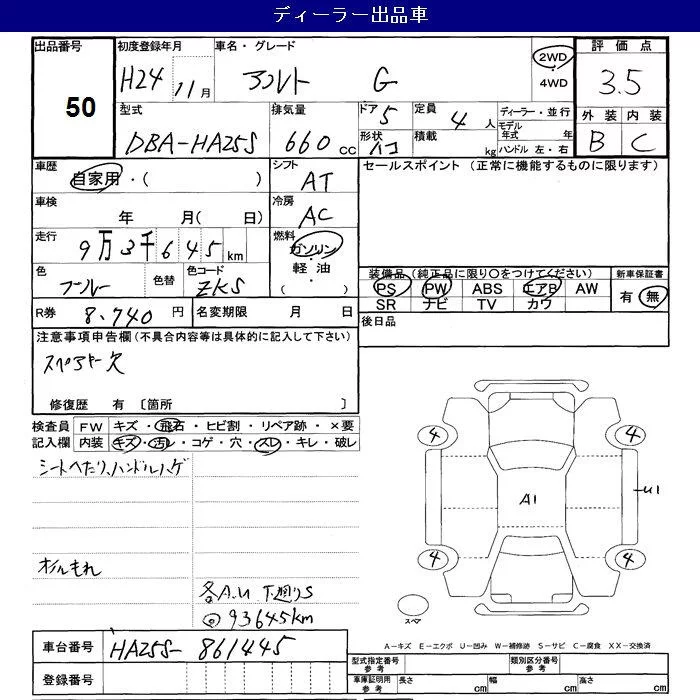 ディーラー出品車
出品番号 50
初度登録年月 H24 11月
車名・グレード アルト G
2WD ・ 4WD
評価点 3.5
外装 内装
B C
型式 DBA-HA25S
排気量 660 cc
ドア 5
形状 ハコ
定員 4 人
積載 kg
ディーラー・並行
モデル年式 年
ハンドル 左・右
車歴 自家用・( )
シフト AT
セールスポイント (正常に機能するものに限ります)
車検 年 月( 日)
冷房 AC
走行 9万3千645km
燃料 ガソリン・軽油・( )
色 ブルー 色替
色コード ZKS
装備品(純正品に限り○をつけてください)
PS PW ABS エアB AW
SR ナビ TV カワ
新車保証書
有 無
R券 8.740 円
名変期限 月 日
後日品
注意事項申告欄(不具合内容等は具体的に記入して下さい)
スペアキー欠
修復歴 有 〔箇所 〕
検査員記入欄
FW キズ・飛石・ヒビ割・リペア跡・×要
内装 キズ・汚レ・コゲ・穴・スレ・キレ・破レ
シートへたり、ハンドルハゲ
オイルもれ
各A.U 下廻りS
93645km
4 4
A1 U1
4 4
スペア
A-キズ E-エクボ U-凹み W-補修跡 S-サビ C-腐食 XX-交換済
車台番号 HA25S-861445
登録番号
型式指定番号 参考
類別区分番号 参考
車庫証明用 参考 長さ cm 幅 cm 高さ cm